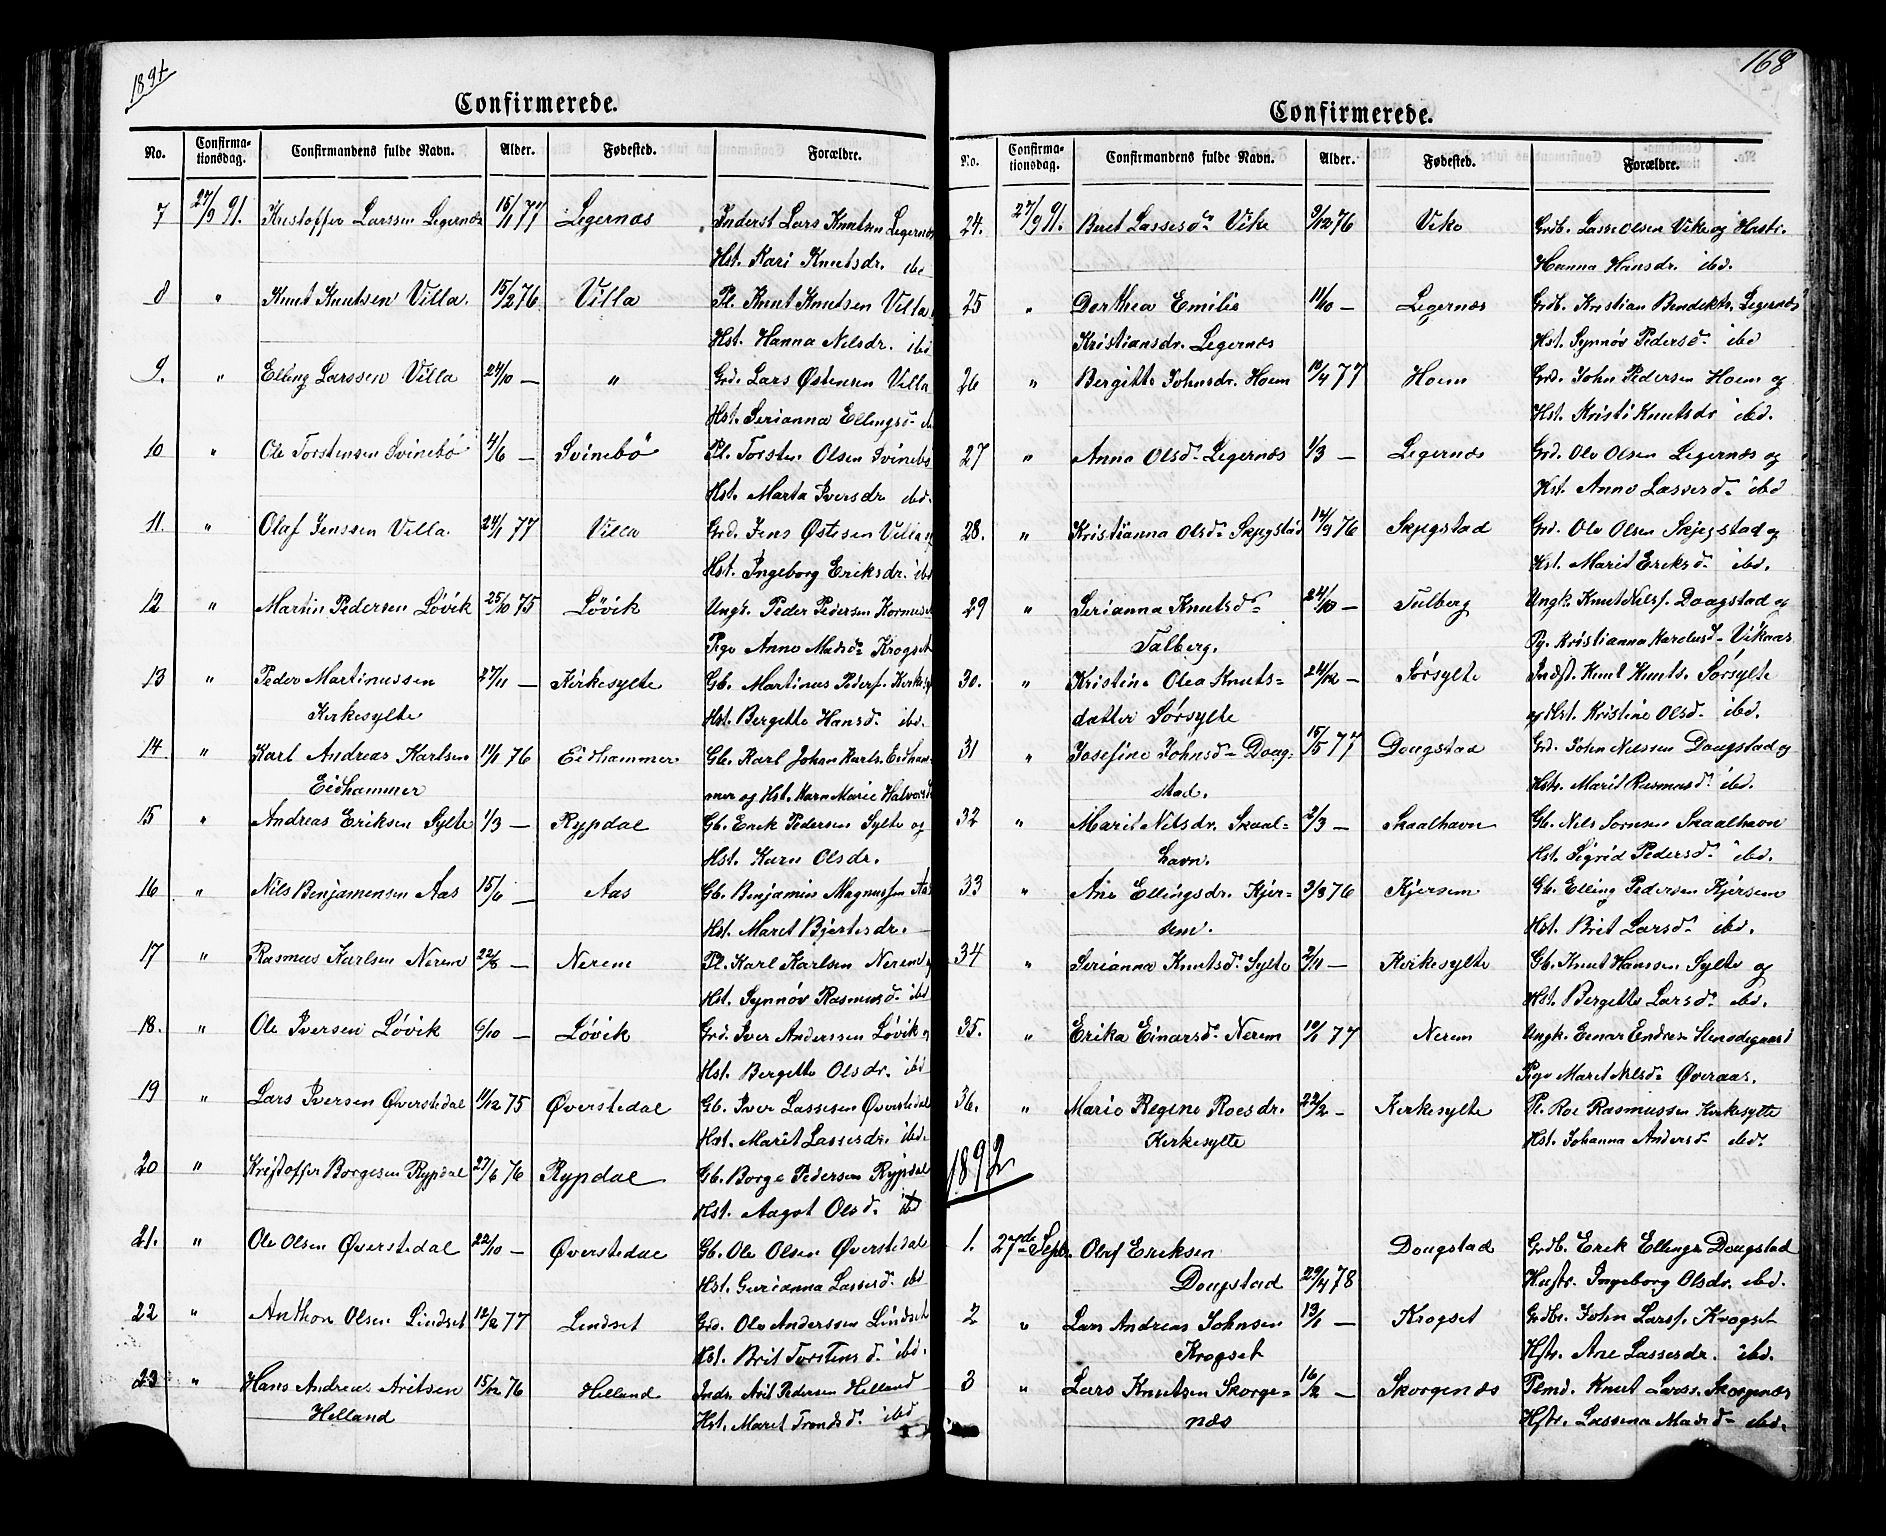 1891
Confirmerede.
No. Confirma-tionsdag. Confirmandens fulde Navn. Alder. Fødested. Forældre.
7 27/9 91. Kristoffer Larssen Legernæs 15/1 77 Legernæs Inderst Lars Knutsen Legernæs
Hst. Kari Knutsdr. ibd
8 " Knut Knutsen Villa. 15/2 76 Villa Pl. Knut Knutsen Villa
Hst. Hanna Nilsdr. ibd
9. " Elling Larssen Villa 24/10 — " Grd. Lars Østensen Villa
Hst. Serianna Ellingsd.
10 " Ole Torstensen Svinebø 4/6 — Svinebø Pl. Torsten Olsen Svinebø
Hst. Marta Iversdr. ibd.
11. " Olaf Jenssen Villa. 24/1 77 Villa Grd. Jens Østesen Villa og
Hst. Ingeborg Eriksdr. ibd
12 " Martin Pedersen Løvik 25/10 75 Løvik Ungk. Peder Pedersen
Pige Anne Madsd. Krogset
13 " Peder Martinussen 27/11 — Kirkesylte Gb. Martinus Peders.
Kirkesylte Hst. Bergitte Hansd. ibd.
14 " Karl Andreas Karlsen 11/1 76 Eidhammer Gb. Karl Johan Karls. Eidham-
Eidhammer mer og Hst. Karn Marie
15 " Andreas Eriksen Sylte 1/3 — Rypdal Gb. Erik Pedersen Sylte og
Hst. Karn Olsdr.
16 " Nils Benjamensen Aas 15/6 — Aas Gb. Benjamin Magnussen Aas
Hst. Maret Bjertesdr.
17 " Rasmus Karlsen Nerem 22/8 — Nerem Pl. Karl Karlsen Nerem og
Hst. Synnøv Rasmusd. ibd
18. " Ole Iversen Løvik 6/10 — Løvik Grd. Iver Anderssen Løvik og
Hst. Bergitte Olsdr. ibd
19 " Lars Iversen Øverstedal 11/12 75 Øverstedal Gb. Iver Lassesen Øverstedal
Hst. Marit Lassesdr. ibd.
20 " Kristoffer Borgesen Rypdal 27/6 76 Rypdal Gb. Borge Pedersen Rypdal
Hst. Aagot Olsd. ibd
21. " Ole Olsen Øverstedal 22/10 — Øverstedal Gb. Ole Olsen Øverstedal
Hst. Gurianna Lassesd. ibd
22 " Anthon Olsen Lindset 12/2 77 Lindset Grd. Ole Anderssen Lindset
Hst. Brit Torstensd. ibd.
23 " Hans Andreas Aritsen 15/12 76 Helland Inds. Arit Pedersen Helland
Helland Hst. Maret Trondsd. ibd
168
Confirmerede.
No. Confirma-tionsdag. Confirmandens fulde Navn. Alder. Fødested. Forældre.
24. 27/9 91. Beret Lassesd. Vike 9/12 76 Vike Grdb. Lasse Olsen Vike og Hustr.
Hanna Hansdr. ibd.
25 " Dorthea Emilie 11/10 — Legernæs Grdb. Kristian Bendiktr. Legernæs
Kristiansdr. Legernæs Hst. Synnøv Pedersd. ibd
26 " Bergitte Johnsdr. Hoem 10/4 77 Hoem Grd. John Pedersen Hoem og
Hst. Kristi Knutsdr ibd.
27 " Anna Olsd. Legernæs 1/3 — Legernæs Grd. Ole Olsen Legernæs og
Hst. Anne Lassesd. ibd
28. " Kristianna Olsd. Skjegstad 14/9 76 Skjegstad Grd. Ole Olsen Skjegstad og
Hst. Marit Eriksd. ibd.
29 " Serianna Knutsd. 24/10 — Talberg Ungk. Knut Nilss. Daagstad og
Talberg. Pg. Kristianna Karelusd. Vikaas
30. " Kristine Olea Knuts= 24/12 — Sørsylte Indst. Knut Knuts. Sørsylte
datter Sørsylte og Hst. Kristine Olsd. ibd.
31 " Josefine Johnsd. Daag= 15/5 77 Dougstad Grd. John Nilssen Dougstad og
stad. Hstr. Marit Rasmusd. ibd.
32 " Marit Nilsdr. Skaal= 2/3 — Skaalhavn Gb. Nils Sørnsen Skaalhavn
havn. Hst. Sigrid Pedersd. ibd.
33 " Ane Ellingsdr. Kjer= 3/3 76 Kjersem Gb. Elling Pedersen Kjersem
sem. Hst. Brit Larsd. ibd.
34 " Serianna Knutsd. Sylte 2/11 — Kirkesylte Gb. Knut Hanssen Sylte og
Hst. Bergitte Larsd. ibd.
35. " Erika Einarsd. Nerem 10/1 77 Nerem Ungk. Einar Endres.
Pige Maret Nilsd. Øveraas.
36. " Marie Regine Roesdr. 22/2 — Kirkesylte Pl. Roe Rasmussen Kirkesylte
Kirkesylte Hst. Johanna Andersd. ibd.
1892
1. 27de Septr. Olaf Eriksen Dougstad Grdb. Erik Ellings. Dougstad
Dougstad 29/4 78 Hustr. Ingeborg Olsdr. ibd.
2 " Lars Andreas Johnsen 13/1 — Krogset Grdbr. John Larss. Krogset
Krogset Hstr. Ane Lassesdr. ibd.
3 " Lars Knutsen Skorge= 16/2 — Skorgenæs Plmd. Knut Larss. Skorgenæs
næs Hstr. Lassena Madsd. ibd.